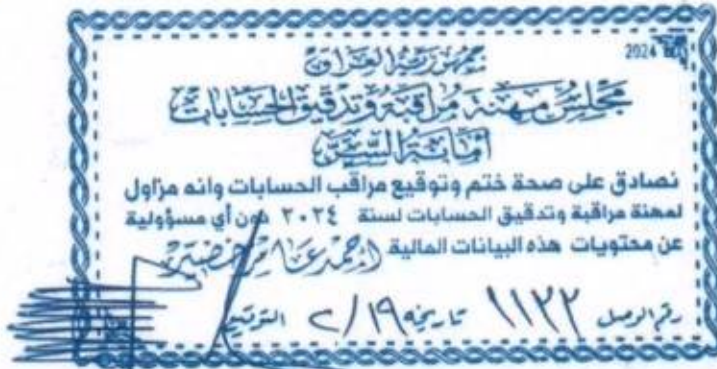 2024
جمهورية العراق
مجلس مهنة مراقبة وتدقيق الحسابات
أمانة السر
نصادق على صحة ختم وتوقيع مراقب الحسابات وانه مزاول
لمهنة مراقبة وتدقيق الحسابات لسنة ٢٠٢٤ دون أي مسؤولية
عن محتويات هذه البيانات المالية احمد عامر خضير
رقم الوصل ١١٢٢ تاريخه ٢/١٩ التوقيع